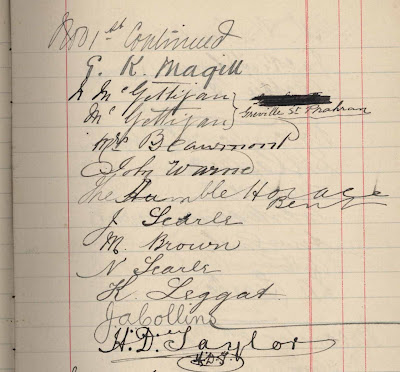 Nov 1st Continued
G. K. Magill
L McGettigan
Mc Gettigan
Greville St Prahran
Mrs Beaumont
John Warne
The Humble Horace
Ben
J Searle
M. Brown
N Searle
K. Leggat
J A Collins
H. D. Taylor
H.D.T.